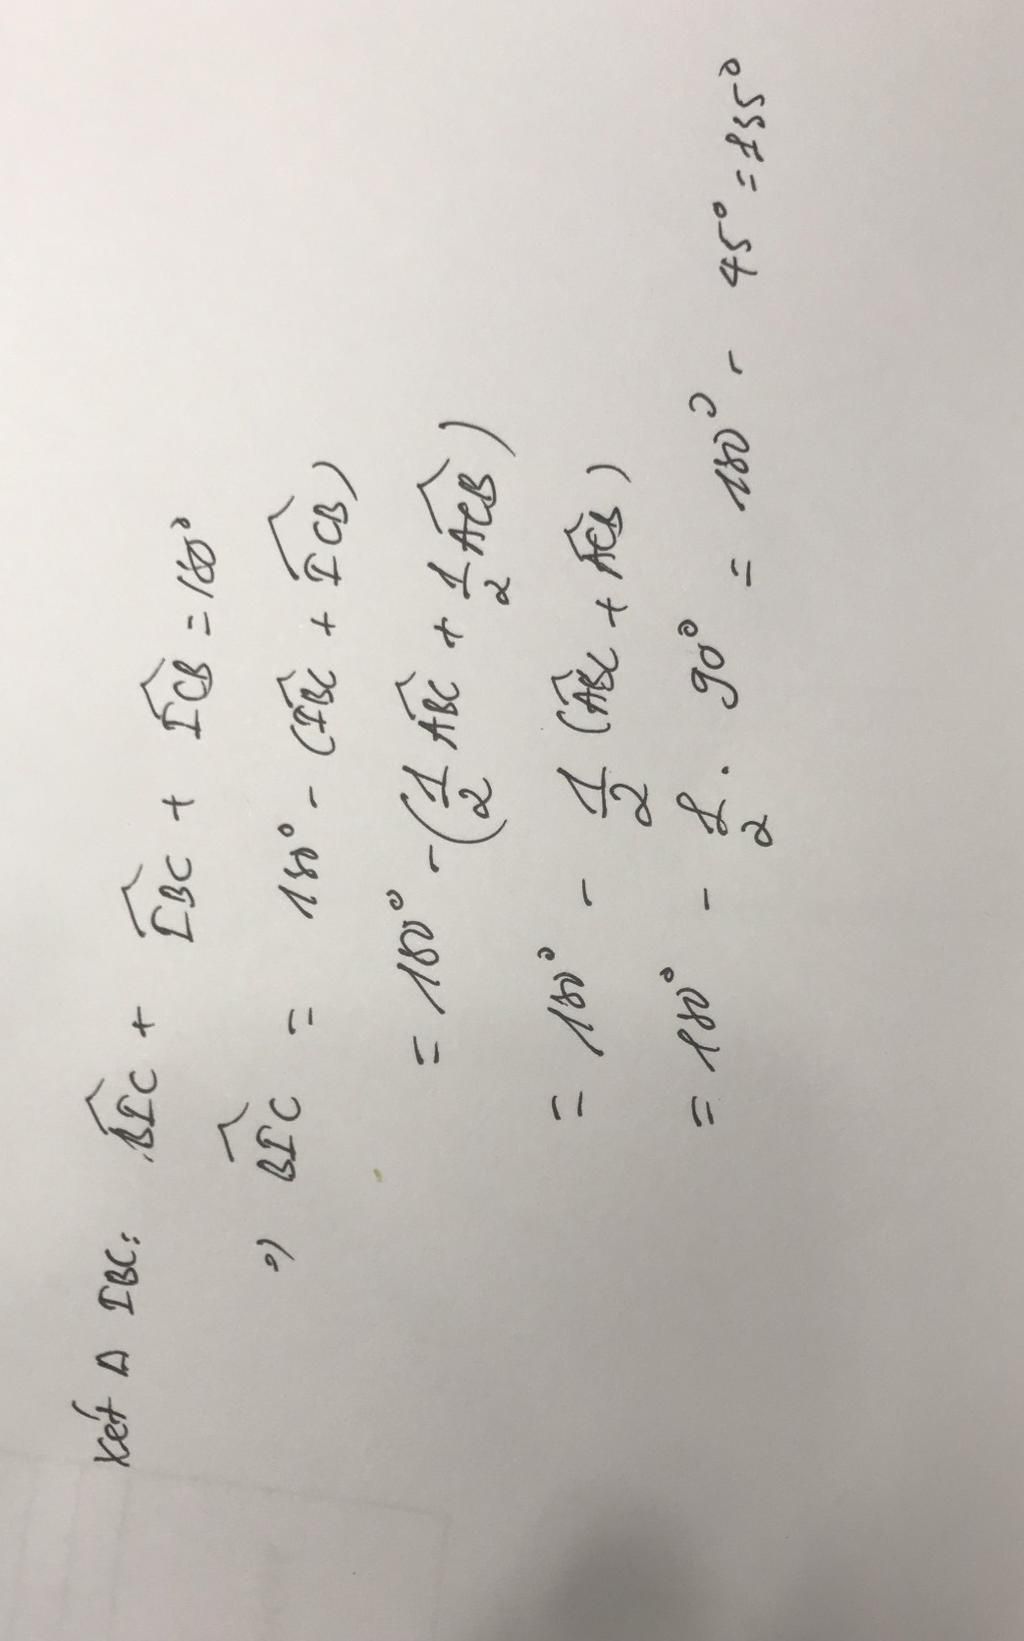 Xét Δ IBC: \widehat{BIC} + \widehat{IBC} + \widehat{ICB} = 180°
=) \widehat{BIC} = 180° - (\widehat{IBC} + \widehat{ICB})
= 180° - (\frac{1}{2} \widehat{ABC} + \frac{1}{2} \widehat{ACB})
= 180° - \frac{1}{2} (\widehat{ABC} + \widehat{ACB})
= 180° - \frac{1}{2} . 90° = 180° - 45° = 135°